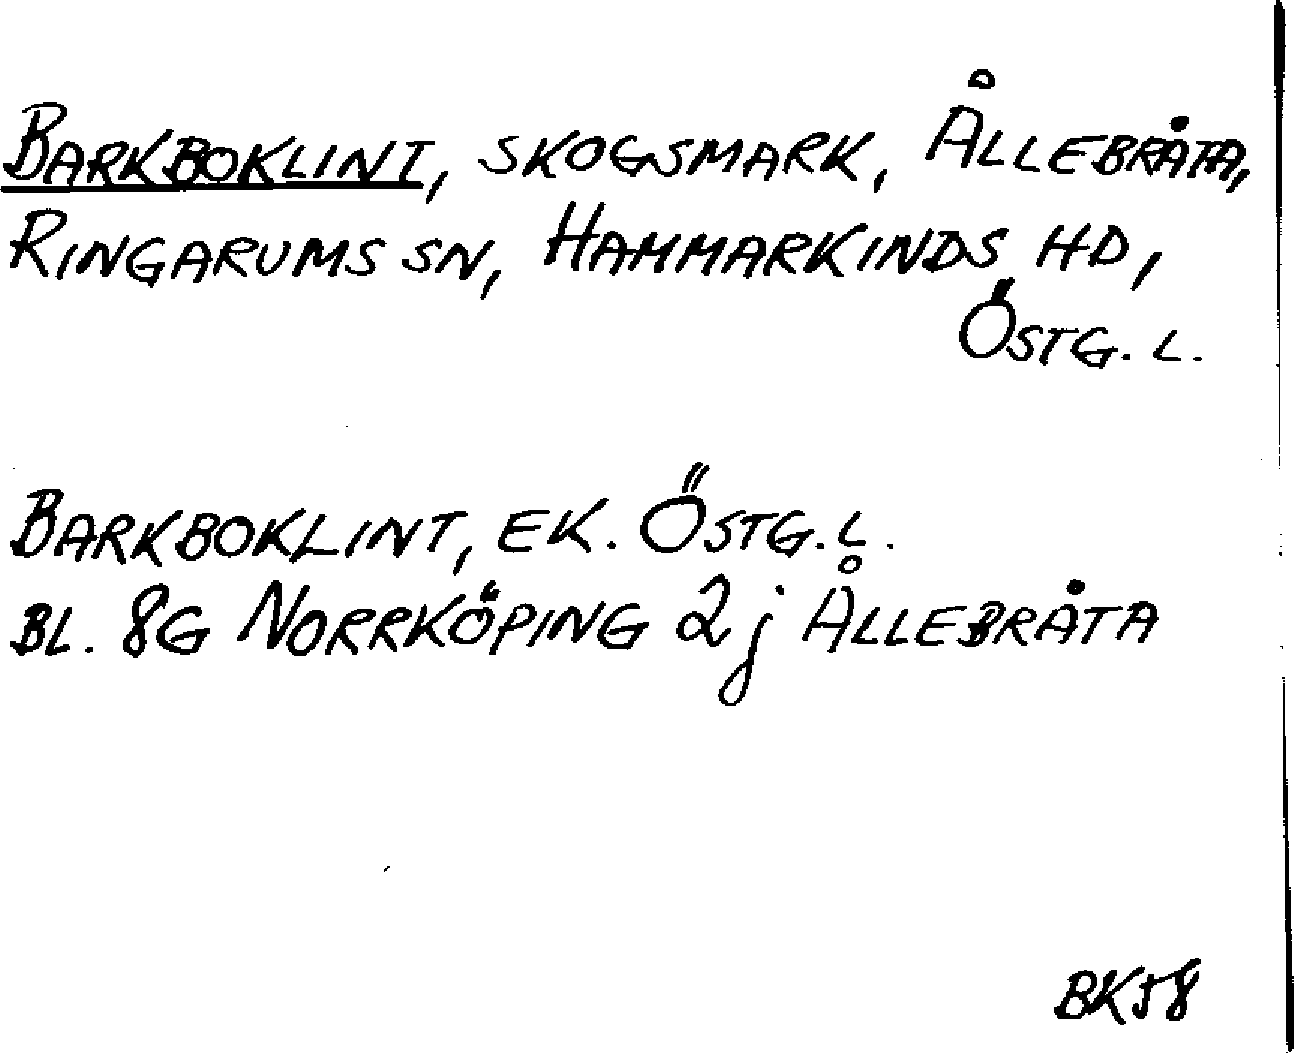 BARKBOKLINT, SKOGSMARK, ÅLLEBRÅTA,
RINGARUMS SN, HAMMARKINDS HD,
ÖSTG. L.
BARKBOKLINT, EK. ÖSTG. L.
BL. 8G NORRKÖPING 2j ÅLLEBRÅTA
BK58